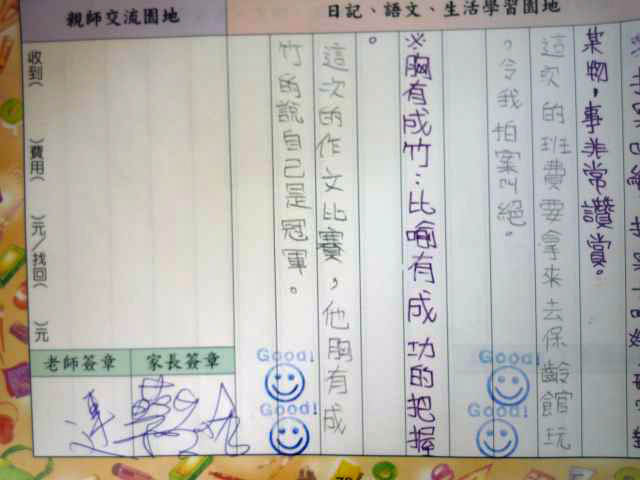 日記、語文、生活學習園地
親師交流園地
某物，事非常讚賞。
這次的班費要拿來去保齡館玩
，令我拍案叫絕。
※胸有成竹：比喻有成功的把握
。
這次的作文比賽，他胸有成
竹的說自己是冠軍。
收到（ ）費用（ ）元／找回（ ）元
老師簽章
家長簽章
Good!
Good!
Good!
Good!